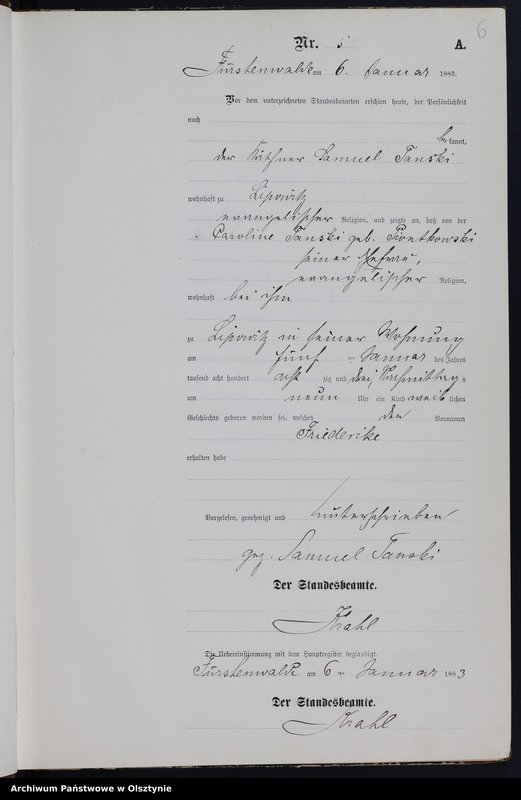 6
Nr. 5 A.
Fürstenwalde am 6. Januar 1883.
Vor dem unterzeichneten Standesbeamten erschien heute, der Persönlichkeit
nach
be kannt,
der Käthner Samuel Tanski
wohnhaft zu Lipowitz
evangelischer Religion, und zeigte an, daß von der
Caroline Tanski geb. Piontkowski
seiner Ehefrau,
evangelischer Religion,
wohnhaft bei ihm
zu Lipowitz in seiner Wohnung
am fünf ten Januar des Jahres
tausend acht hundert acht zig und drei Nachmittag s
um neun Uhr ein Kind weib lichen
Geschlechts geboren worden sei, welches den Vornamen
Friederike
erhalten habe
Vorgelesen, genehmigt und unterschrieben
gez. Samuel Tanski
Der Standesbeamte.
Krahl
Die Uebereinstimmung mit dem Hauptregister beglaubigt.
Fürstenwalde am 6 ten Januar 1883
Der Standesbeamte.
Krahl
Archiwum Państwowe w Olsztynie